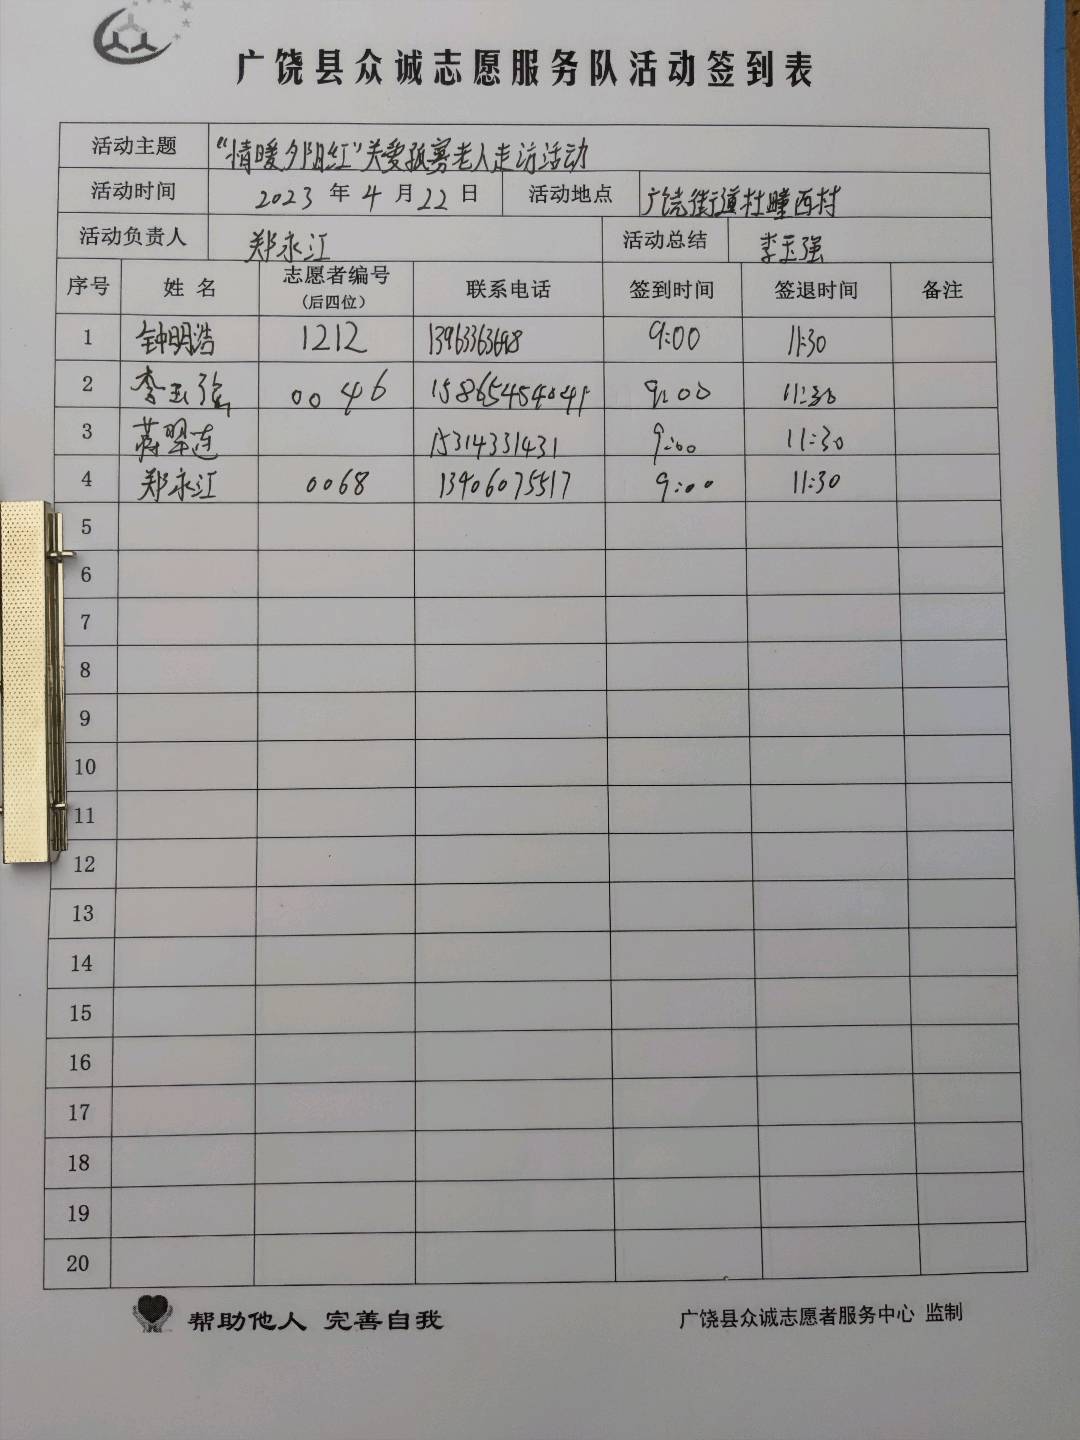 广饶县众诚志愿服务队活动签到表
活动主题 “情暖夕阳红”关爱孤寡老人走访活动
活动时间 2023 年 4 月 22 日 活动地点 广饶街道杜疃西村
活动负责人 郑永江 活动总结 李玉强
序号 姓 名 志愿者编号 联系电话 签到时间 签退时间 备注
(后四位)
1 钟明浩 1212 9:00 11:30
2 李玉强 0046 9:00 11:30
3 蒋翠连 15314331431 9:00 11:30
4 郑永江 0068 13406075517 9:00 11:30
5
6
7
8
9
10
11
12
13
14
15
16
17
18
19
20
帮助他人 完善自我 广饶县众诚志愿者服务中心 监制